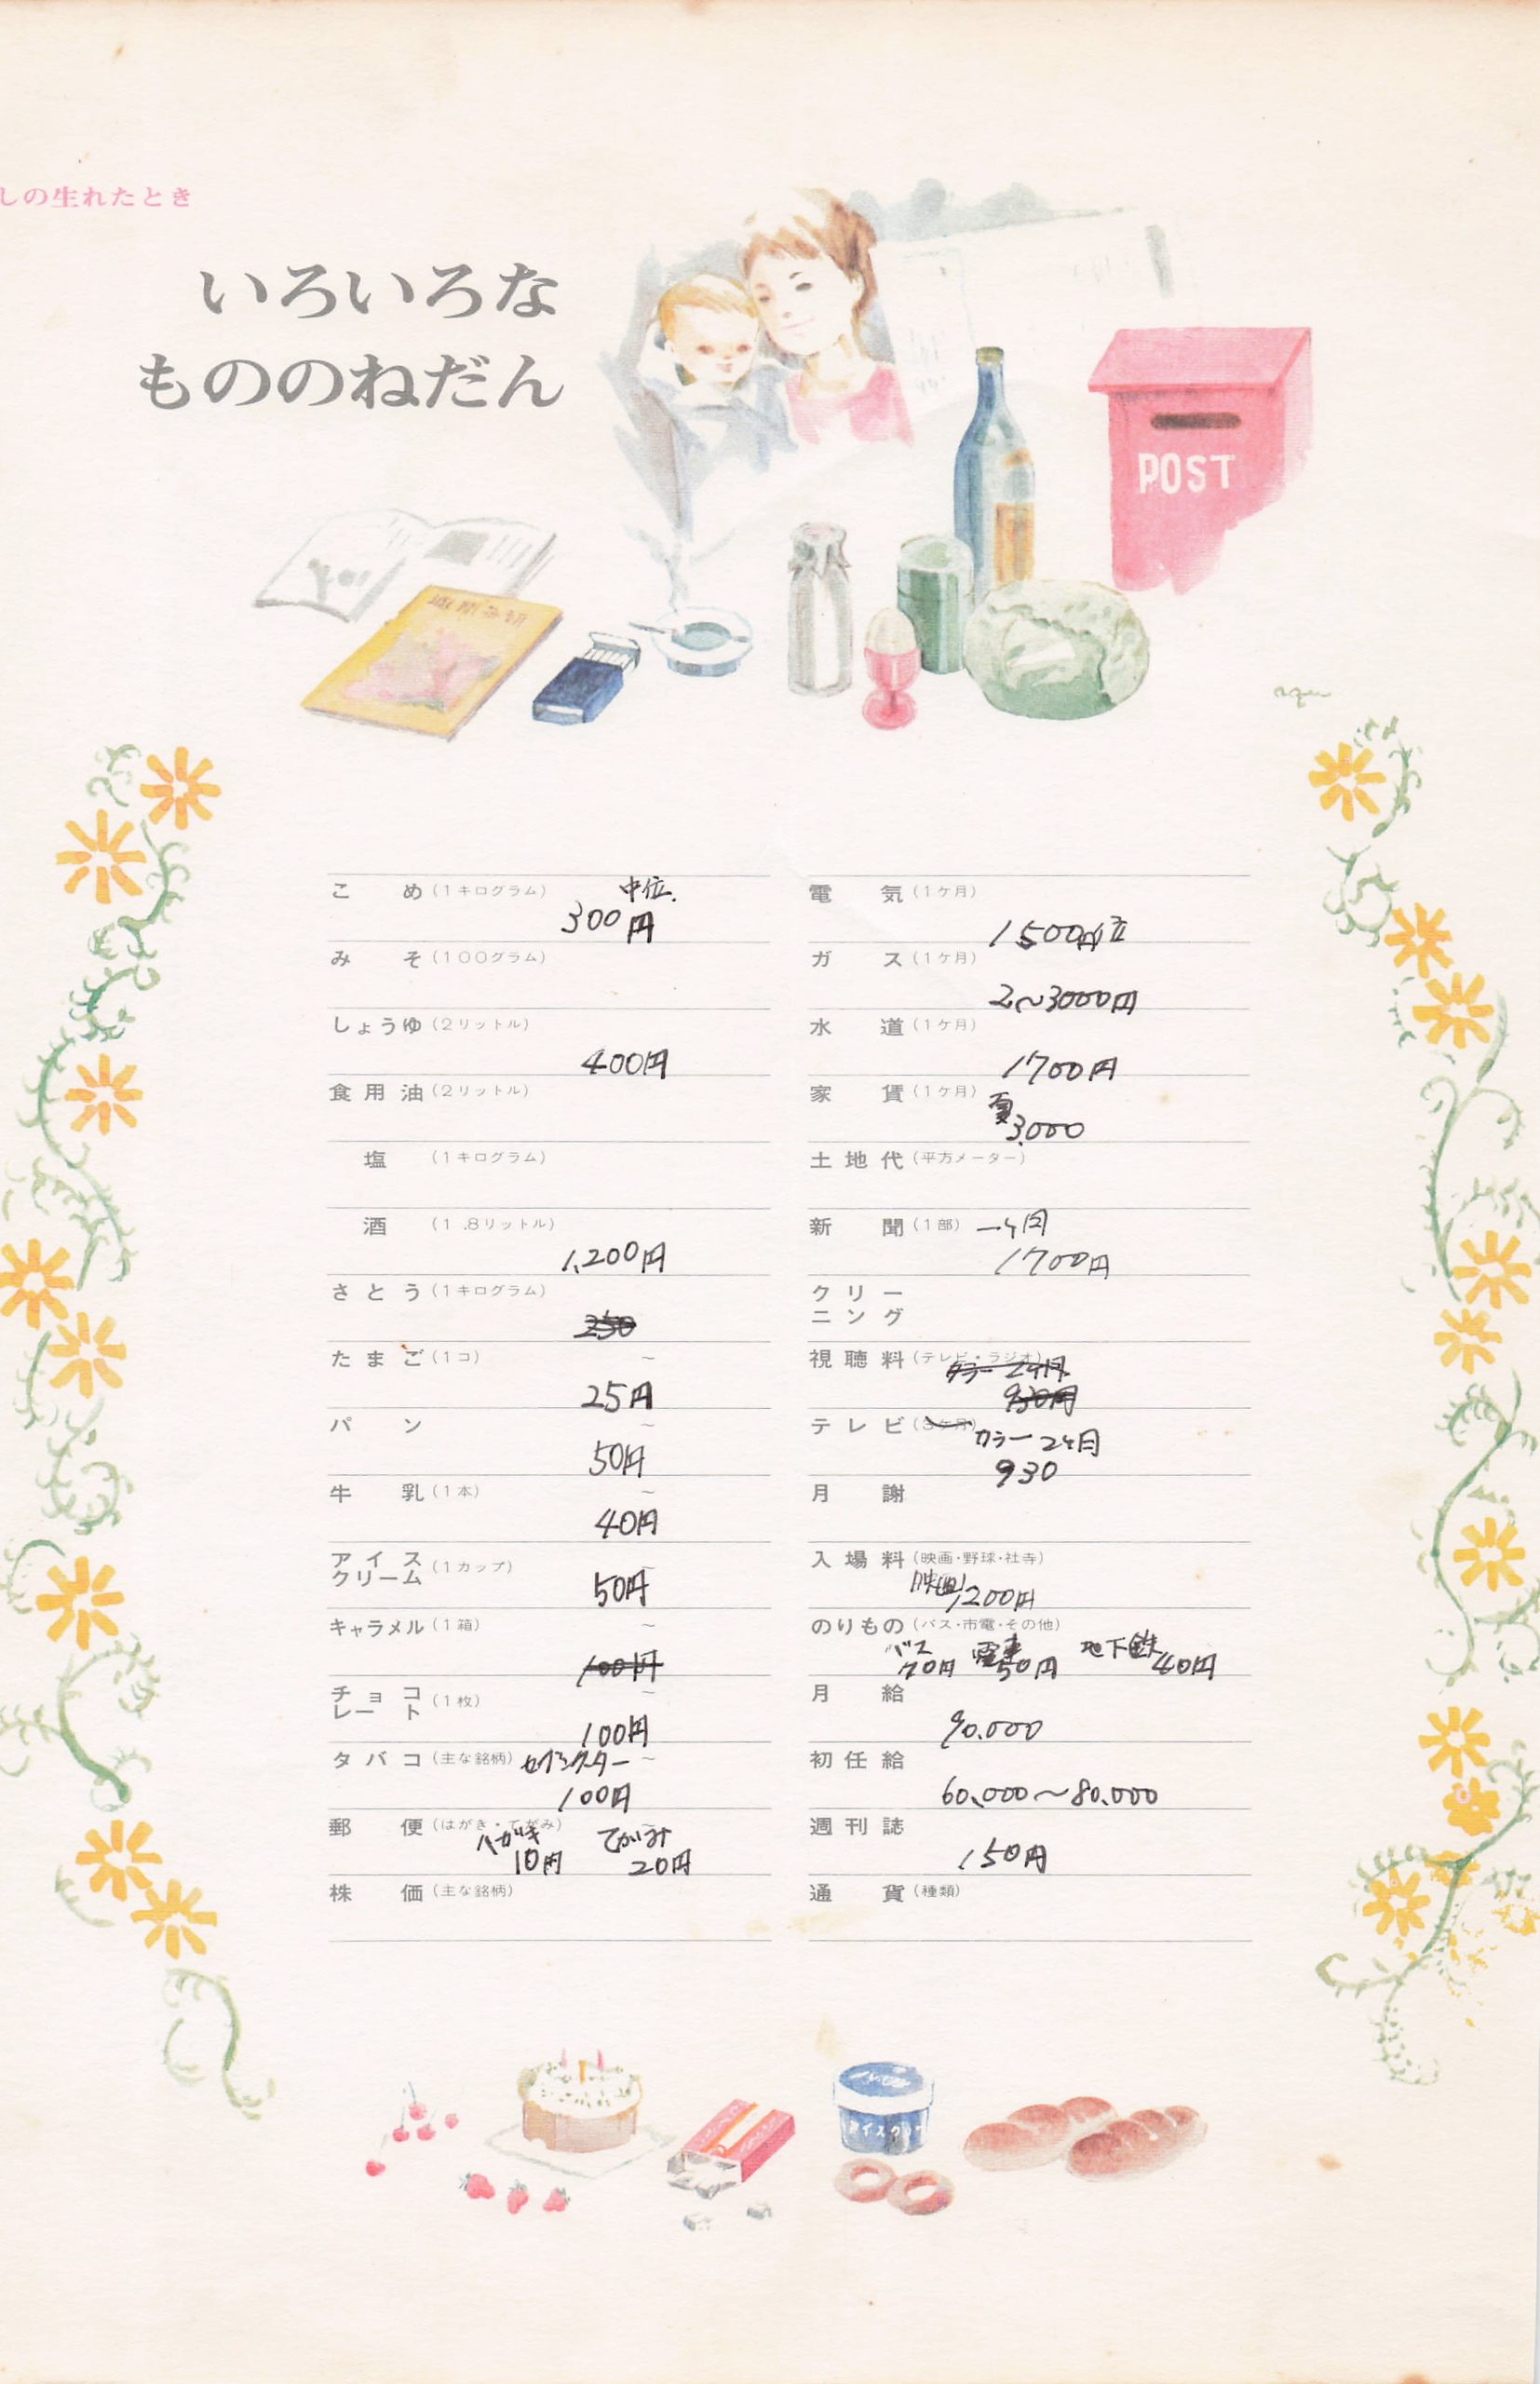 しの生れたとき
いろいろな
もののねだん
POST
こめ(1キログラム) 中位.
300円
みそ(100グラム)
しょうゆ(2リットル)
400円
食用油(2リットル)
塩(1キログラム)
酒(1.8リットル)
1,200円
さとう(1キログラム)
250
たまご(1コ) ~
25円
パン ~
50円
牛乳(1本) ~
40円
アイスクリーム(1カップ) ~
50円
キャラメル(1箱) ~
100円
チョコレート(1枚) ~
100円
タバコ(主な銘柄) セブンスター ~
100円
郵便(はがき・てがみ)
ハガキ てがみ
10円 20円
株価(主な銘柄)
電気(1ケ月)
1500円位
ガス(1ケ月)
2~3000円
水道(1ケ月)
1700円
家賃(1ケ月)
3,000
土地代(平方メーター)
新聞(1部) 一ケ月
1700円
クリーニング
視聴料(テレビ・ラジオ)
カラー 2ケ月
930円
テレビ(3ケ月)
カラー 2ケ月
930
月謝
入場料(映画・野球・社寺)
映画1200円
のりもの(バス・市電・その他)
バス 電車 地下鉄
70円 50円 40円
月給
90.000
初任給
60,000~80,000
週刊誌
150円
通貨(種類)
アイスクリー